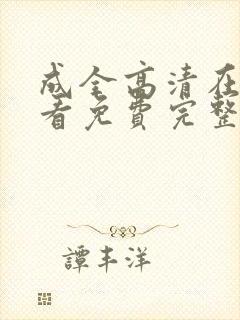 成全高清在
看免费完整
譚丰洋